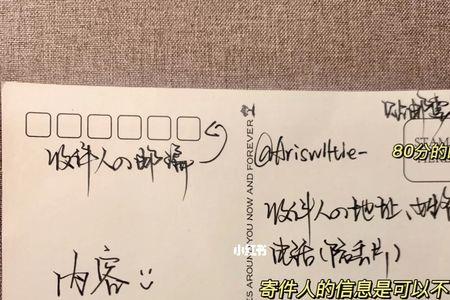 收件人的邮编
内容
ES AROUND YOU NOW AND FOREVER
小红书
贴邮票
STAM
80分的
收件人的地址、姓名
电话(防丢片)
寄件人的信息是可以不